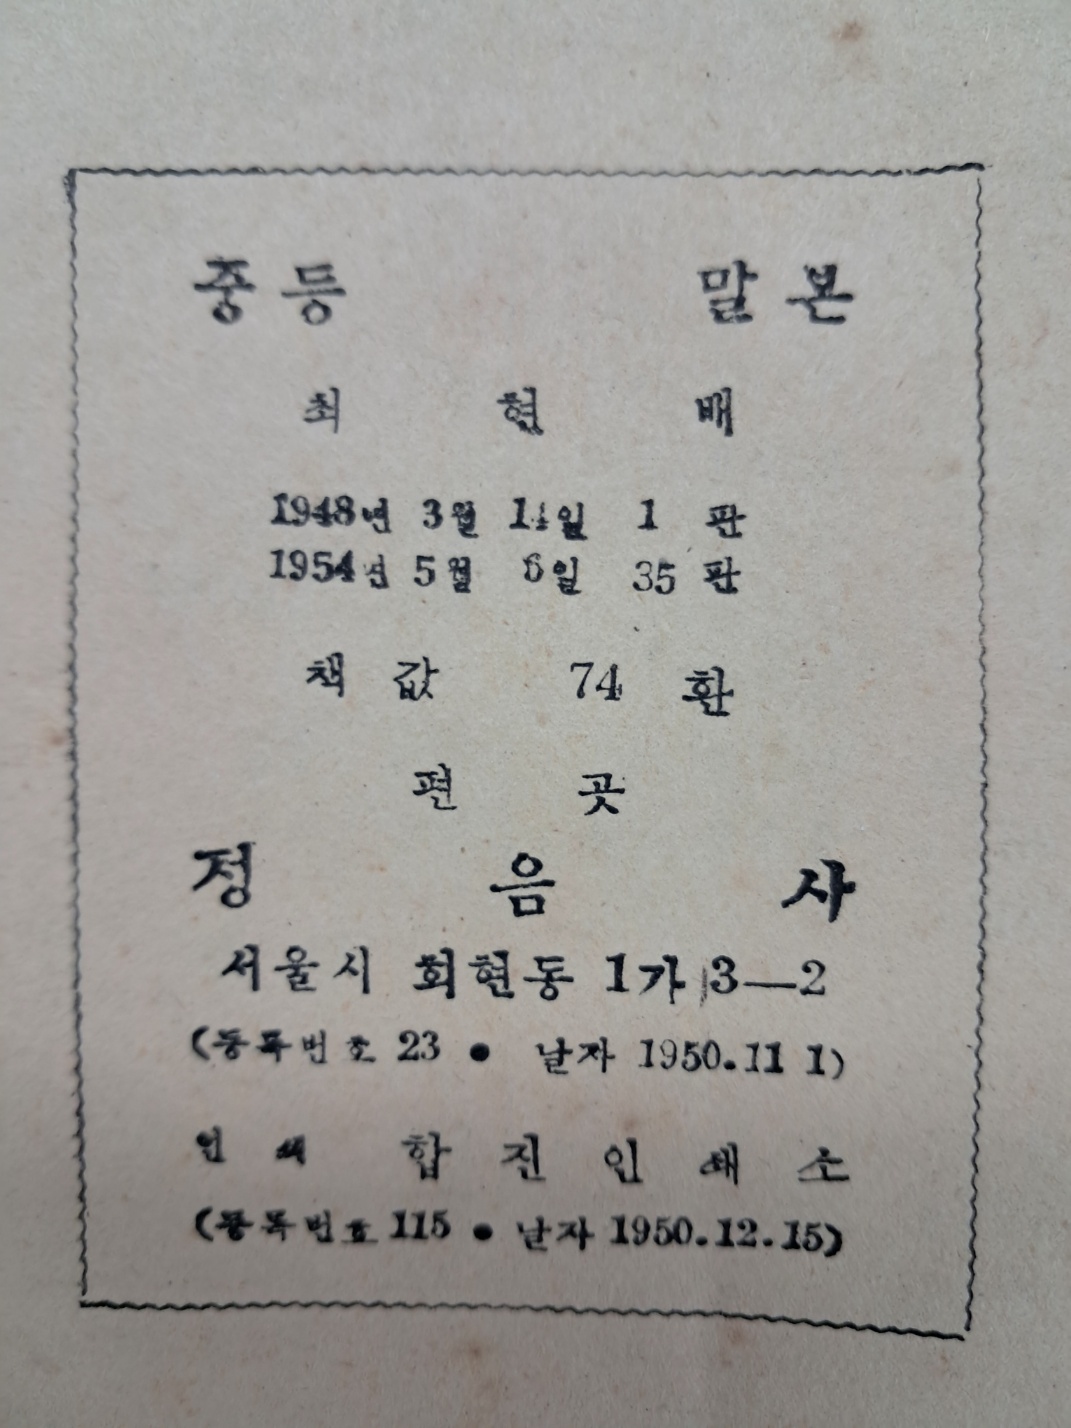 중등 말본
최현배
1948년 3월 14일 1 판
1954년 5월 6일 35 판
책값 74 환
편 곳
정음사
서울시 회현동 1가 3—2
(등록번호 23 • 날자 1950.11 1)
인쇄 합진인쇄소
(등록번호 115 • 날자 1950.12.15)